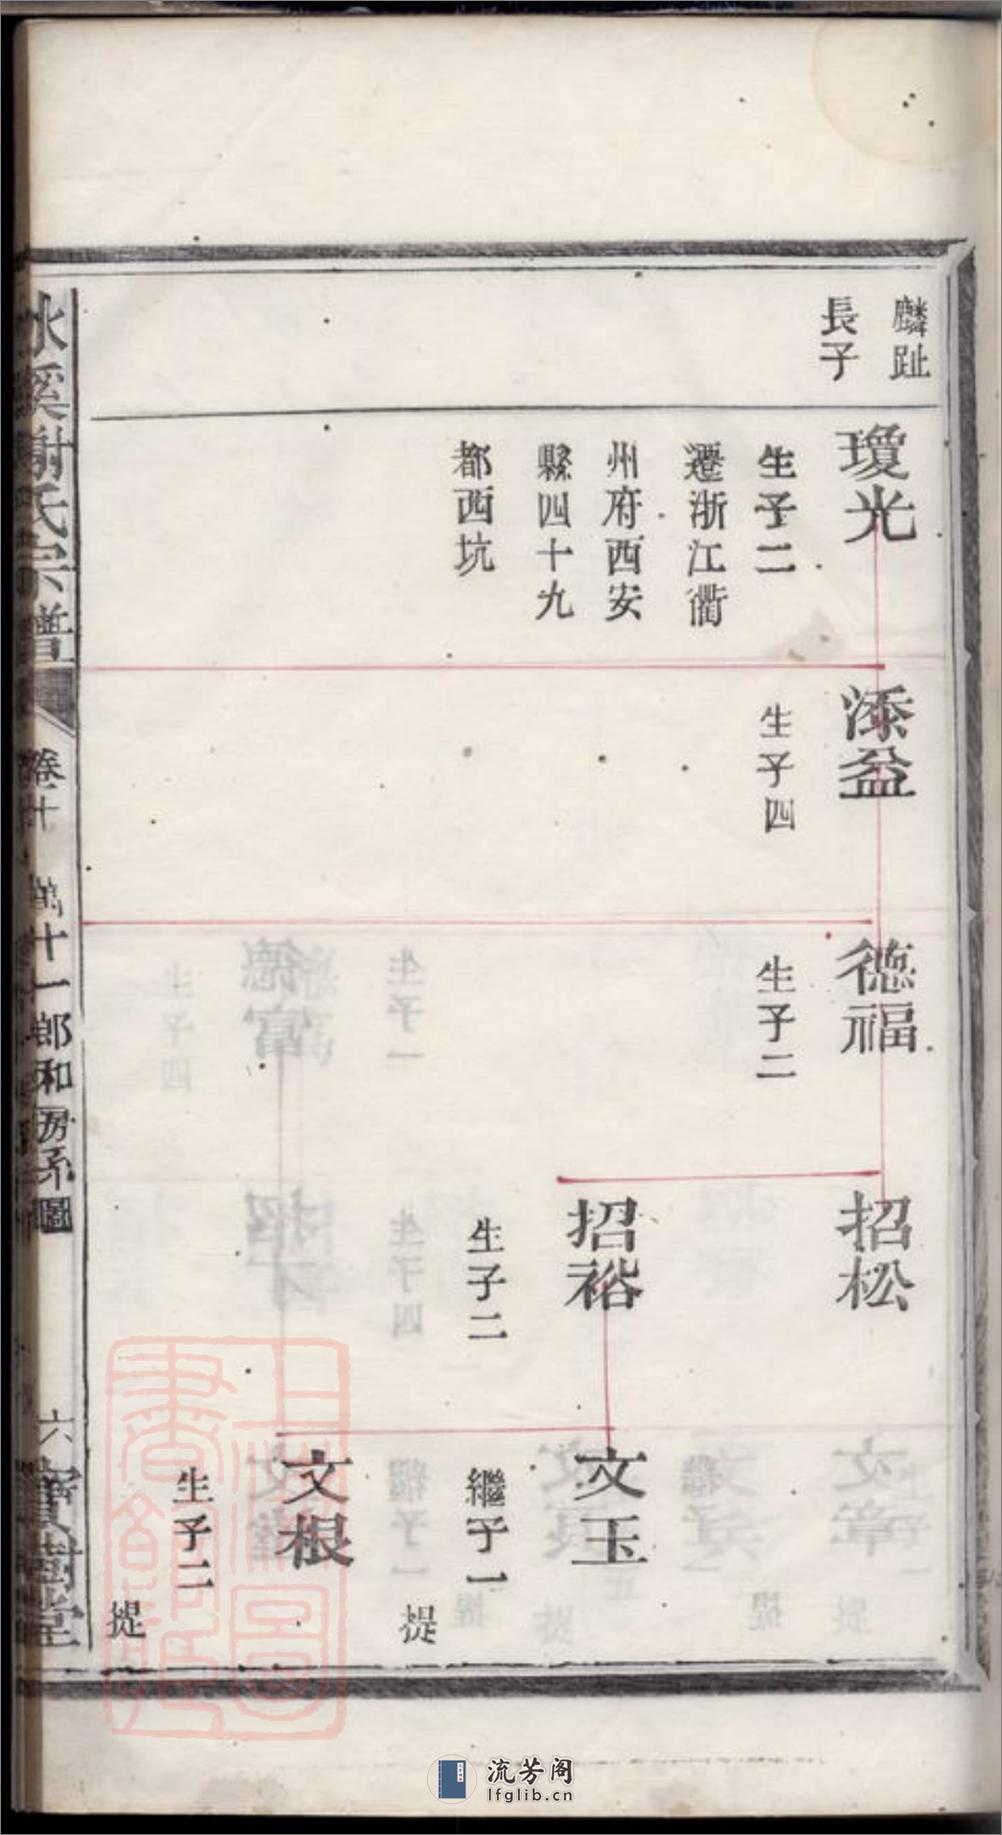 麟趾
長子
瓊光
生子二
遷浙江衢
州府西安
縣四十九
都西坑
添益
生子四
德福
生子二
招松
招裕
生子二
文玉
繼子一
提
文根
生子二
提
冰溪謝氏宗譜
卷十
萬十一郎和房系圖
六
寶樹堂
上海圖書館藏
流芳阁
lfglib.cn